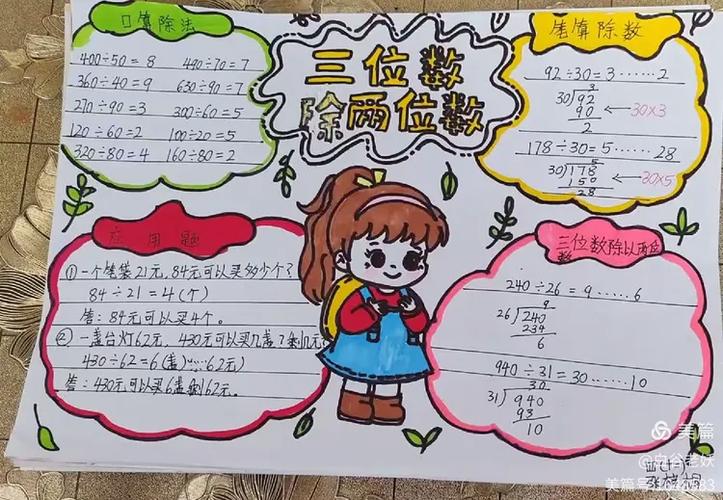 口算除法
400÷50=8 490÷70=7
360÷40=9 630÷90=7
270÷90=3 300÷60=5
120÷60=2 100÷20=5
320÷80=4 160÷80=2
三位数
除两位数
笔算除数
92÷30=3……2
3
30 92
90 ← 30×3
2
178÷30=5……28
5
30 178
150 ← 30×5
28
应用题
① 一个笔袋21元,84元可以买多少个?
84÷21=4(个)
答:84元可以买4个。
② 一盏台灯62元,430元可以买几盏?剩几元?
430÷62=6(盏)……62元)
答:430元可以买6盏剩62元。
三位数除以两位数
240÷26=9……6
9
26 240
234
6
940÷31=30……10
30
31 940
93
10
美篇
@白谷老妖
美篇号